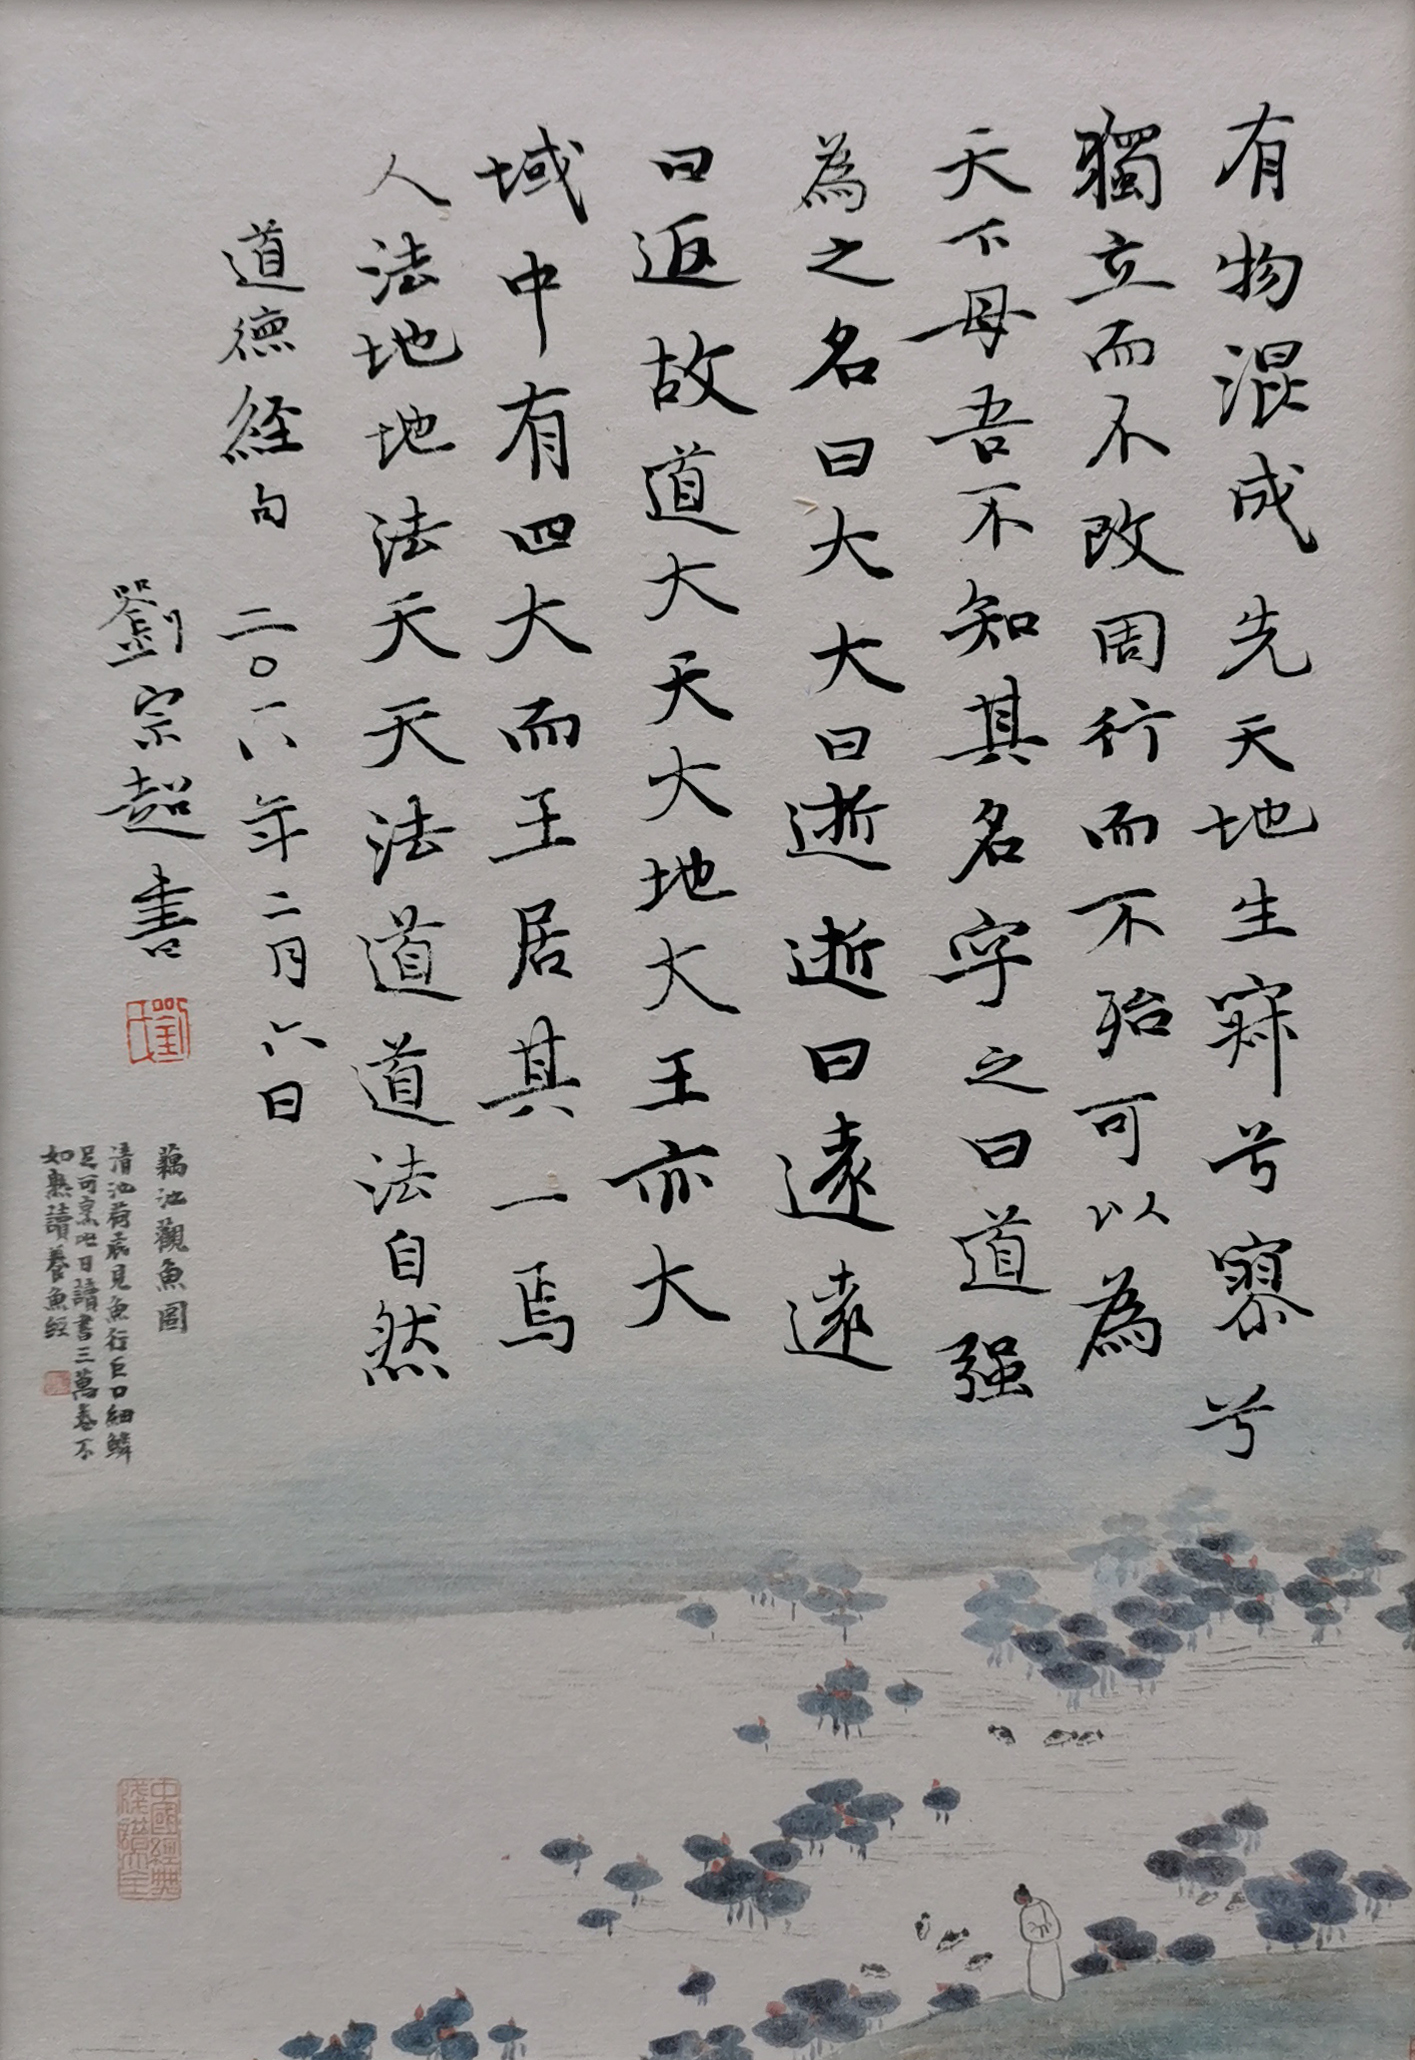 有物混成先天地生寂兮寥兮
獨立而不改周行而不殆可以為
天下母吾不知其名字之曰道强
為之名曰大大曰逝逝曰遠遠
曰返故道大天大地大王亦大
域中有四大而王居其一焉
人法地地法天天法道道法自然
道德經句 二〇一八年二月六日
劉宗超書
劉氏
藕池觀魚圖
清池荷底見魚行巨口細鱗
足可烹昨日讀書三萬卷不
如熟讀養魚經
中國經典